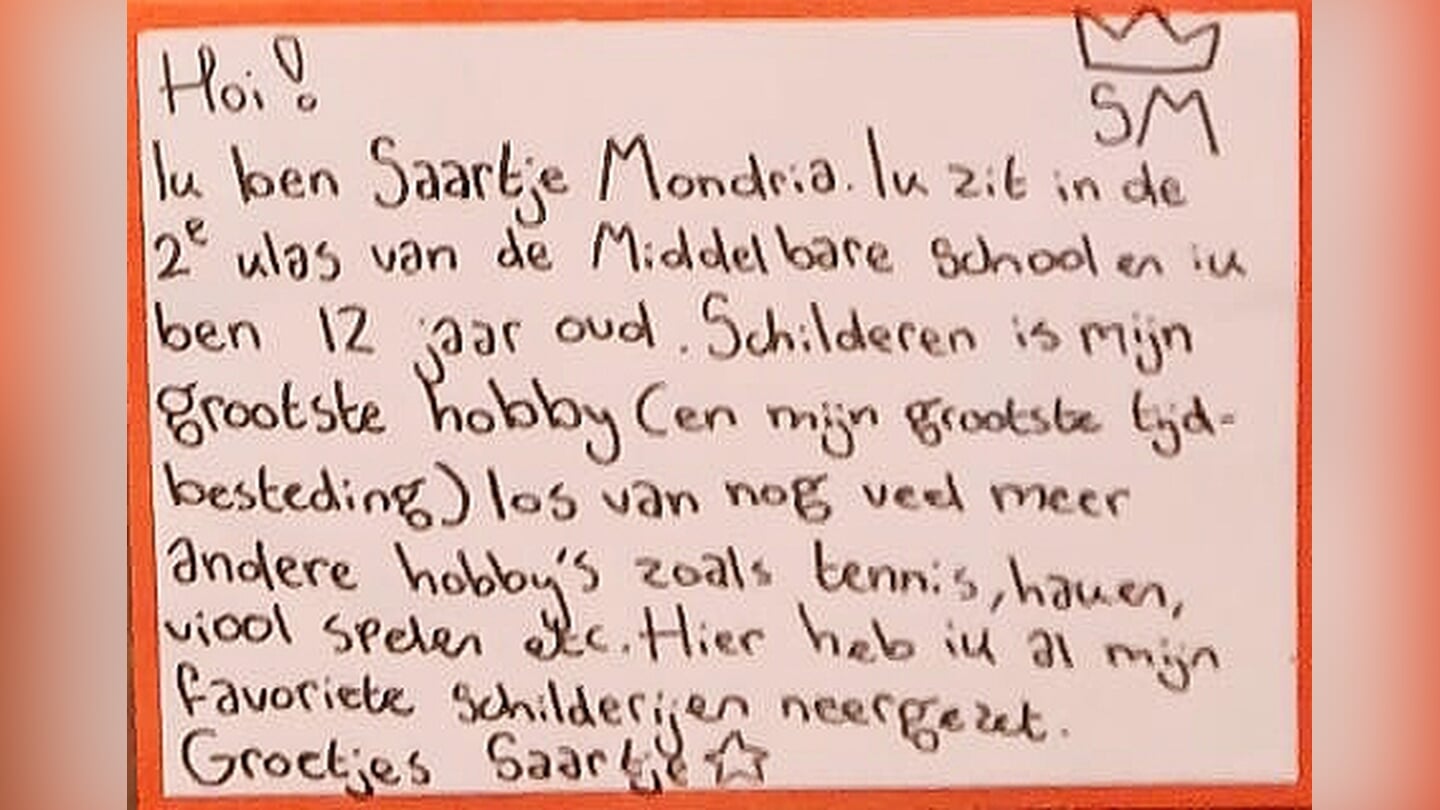 Hoi!
SM
Ik ben Saartje Mondria. Ik zit in de
2e klas van de Middelbare school en ik
ben 12 jaar oud. Schilderen is mijn
grootste hobby (en mijn grootste tijd-
besteding) los van nog veel meer
andere hobby's zoals tennis, haken,
viool spelen etc. Hier heb ik al mijn
favoriete schilderijen neergezet.
Groetjes Saartje